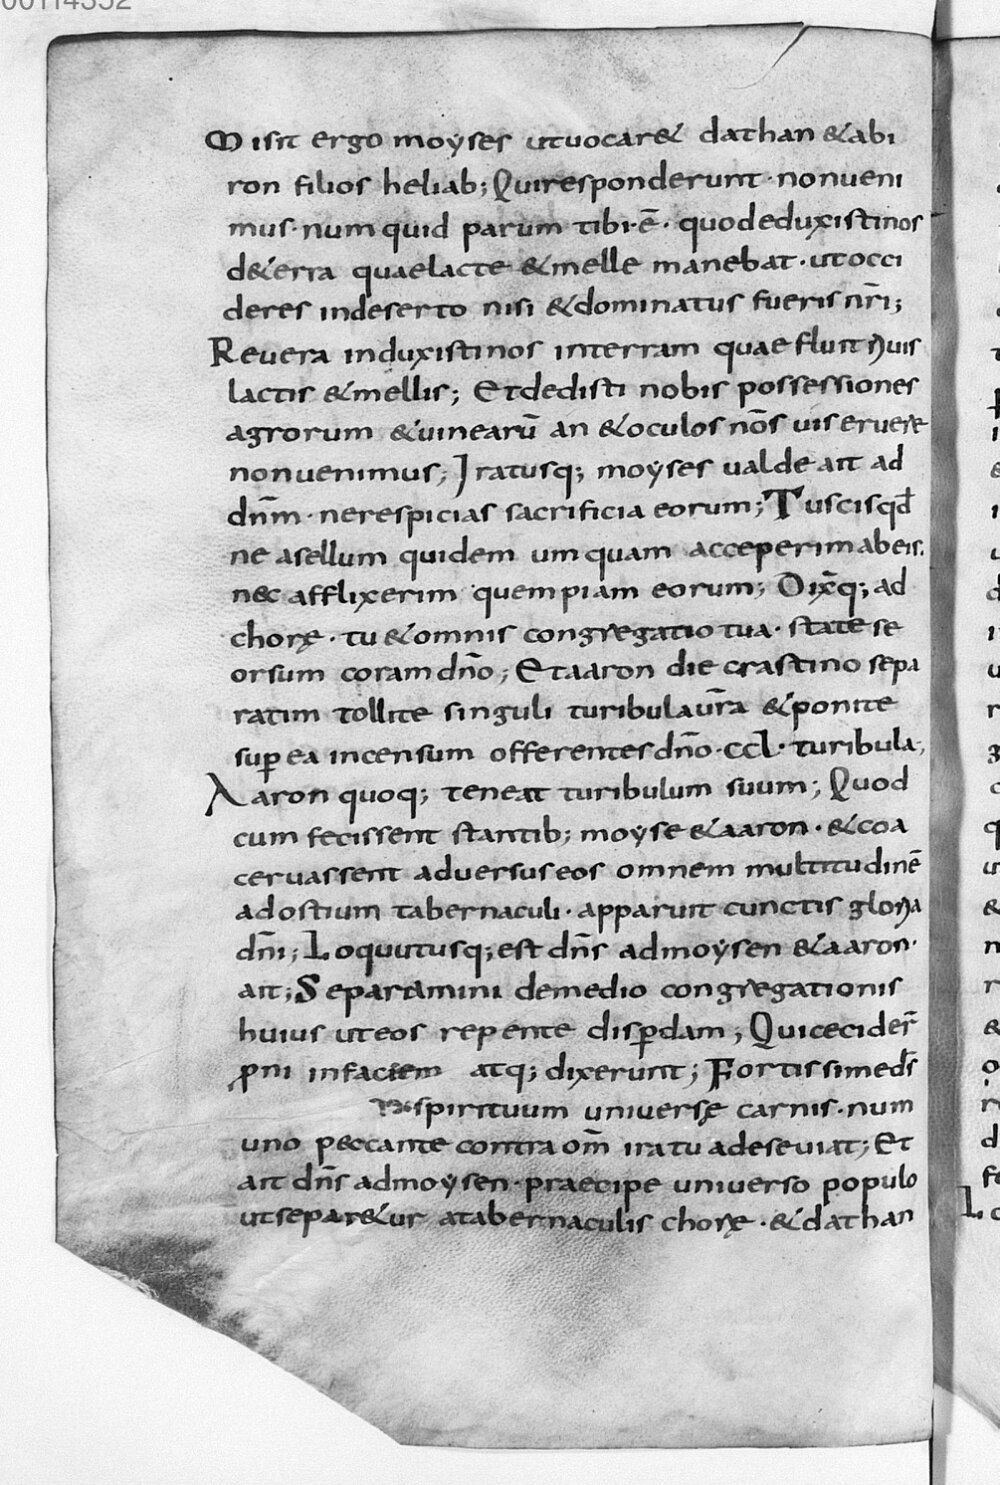 00114352
Misit ergo moyses utuocar& dathan &abi
ron filios heliab; Quiresponderunt · nonueni
mus · num quid parum tibi · ē · quodeduxistinos
d&erra quaelacte &melle manebat · utocci
deres indeserto nisi &dominatus fueris nr̄i;
Reuera induxistinos interram quae fluit riuis
lactis &mellis; Etdedisti nobis possessiones
agrorum &uinearū an &oculos nōs uis eruere
nonuenimus; Iratusq; moyses ualde ait ad
dn̄m · nerespicias sacrificia eorum; Tuscisqd̄
ne asellum quidem umquam acceperimabeis.
nec afflixerim quempiam eorum; Dix̄q; ad
chorę · tu &omnis congregatio tua · state se
orsum coram dn̄o; Etaaron die crastino sepa
ratim tollite singuli turibulaur̄a &ponite
suꝑ ea incensum offerentes dn̄o · ccl · turibula;
Aaron quoq; teneat turibulum suum; Quod
cum fecissent stantib; moyse &aaron · &coa
ceruassent aduersuseos omnem multitudinē
adostium tabernaculi · apparuit cunctis gloria
dn̄i; Loquutusq; est dn̄s admoysen &aaron ·
ait; Separamini demedio congregationis
huius uteos repente disꝑdam; Quicecider̄
ꝓni infaciem atq; dixerunt; Fortissimeds̄
spirituum universę carnis · num
uno peccante contra om̄ iratu adeseuiat; Et
ait dn̄s admoysen · praecipe uniuerso populo
utsepar&ur atabernaculis chorę · &dathan